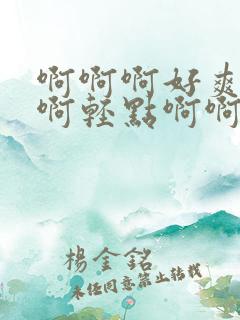 啊啊啊好爽
啊轻點啊啊
楊金銘
未经同意禁止转载